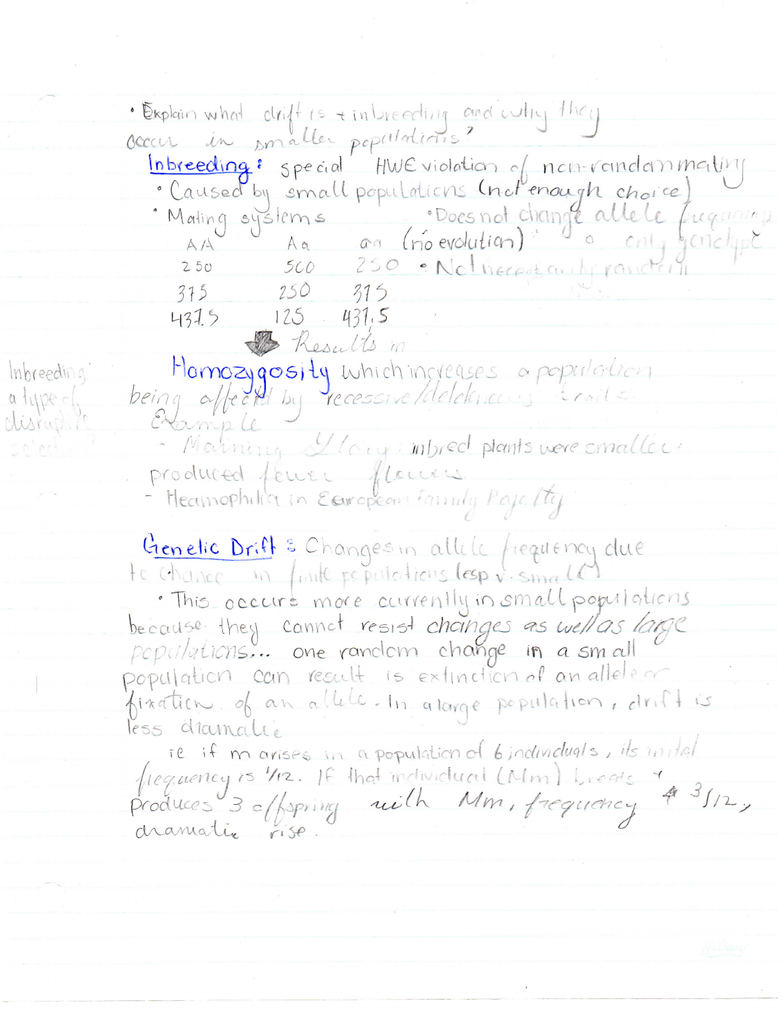 • Explain what drift is + inbreeding and why they
occur in smaller populations?
Inbreeding: special HWE violation of non-random mating
• Caused by small populations (not enough choice)
• Mating systems • Does not change allele frequency
AA Aa aa (no evolution) only genotype
250 500 250 • Not necessarily random
375 250 375
437.5 125 437.5
Results in
Homozygosity which increases a population
being affected by recessive/deleterious traits
Inbreeding
a type of
disruptive
selection
Example
- Morning Glory inbred plants were smaller
produced fewer flowers
- Heamophilia in European Family Royalty
Genetic Drift: Changes in allele frequency due
to chance in finite populations (esp v. small)
• This occurs more currently in small populations
because they cannot resist changes as well as large
populations... one random change in a small
population can result is extinction of an allele or
fixation of an allele. In a large population, drift is
less dramatic
ie if m arises in a population of 6 individuals, its initial
frequency is 1/12. If that individual (Mm) breeds +
produces 3 offspring with Mm, frequency 3/12,
dramatic rise.